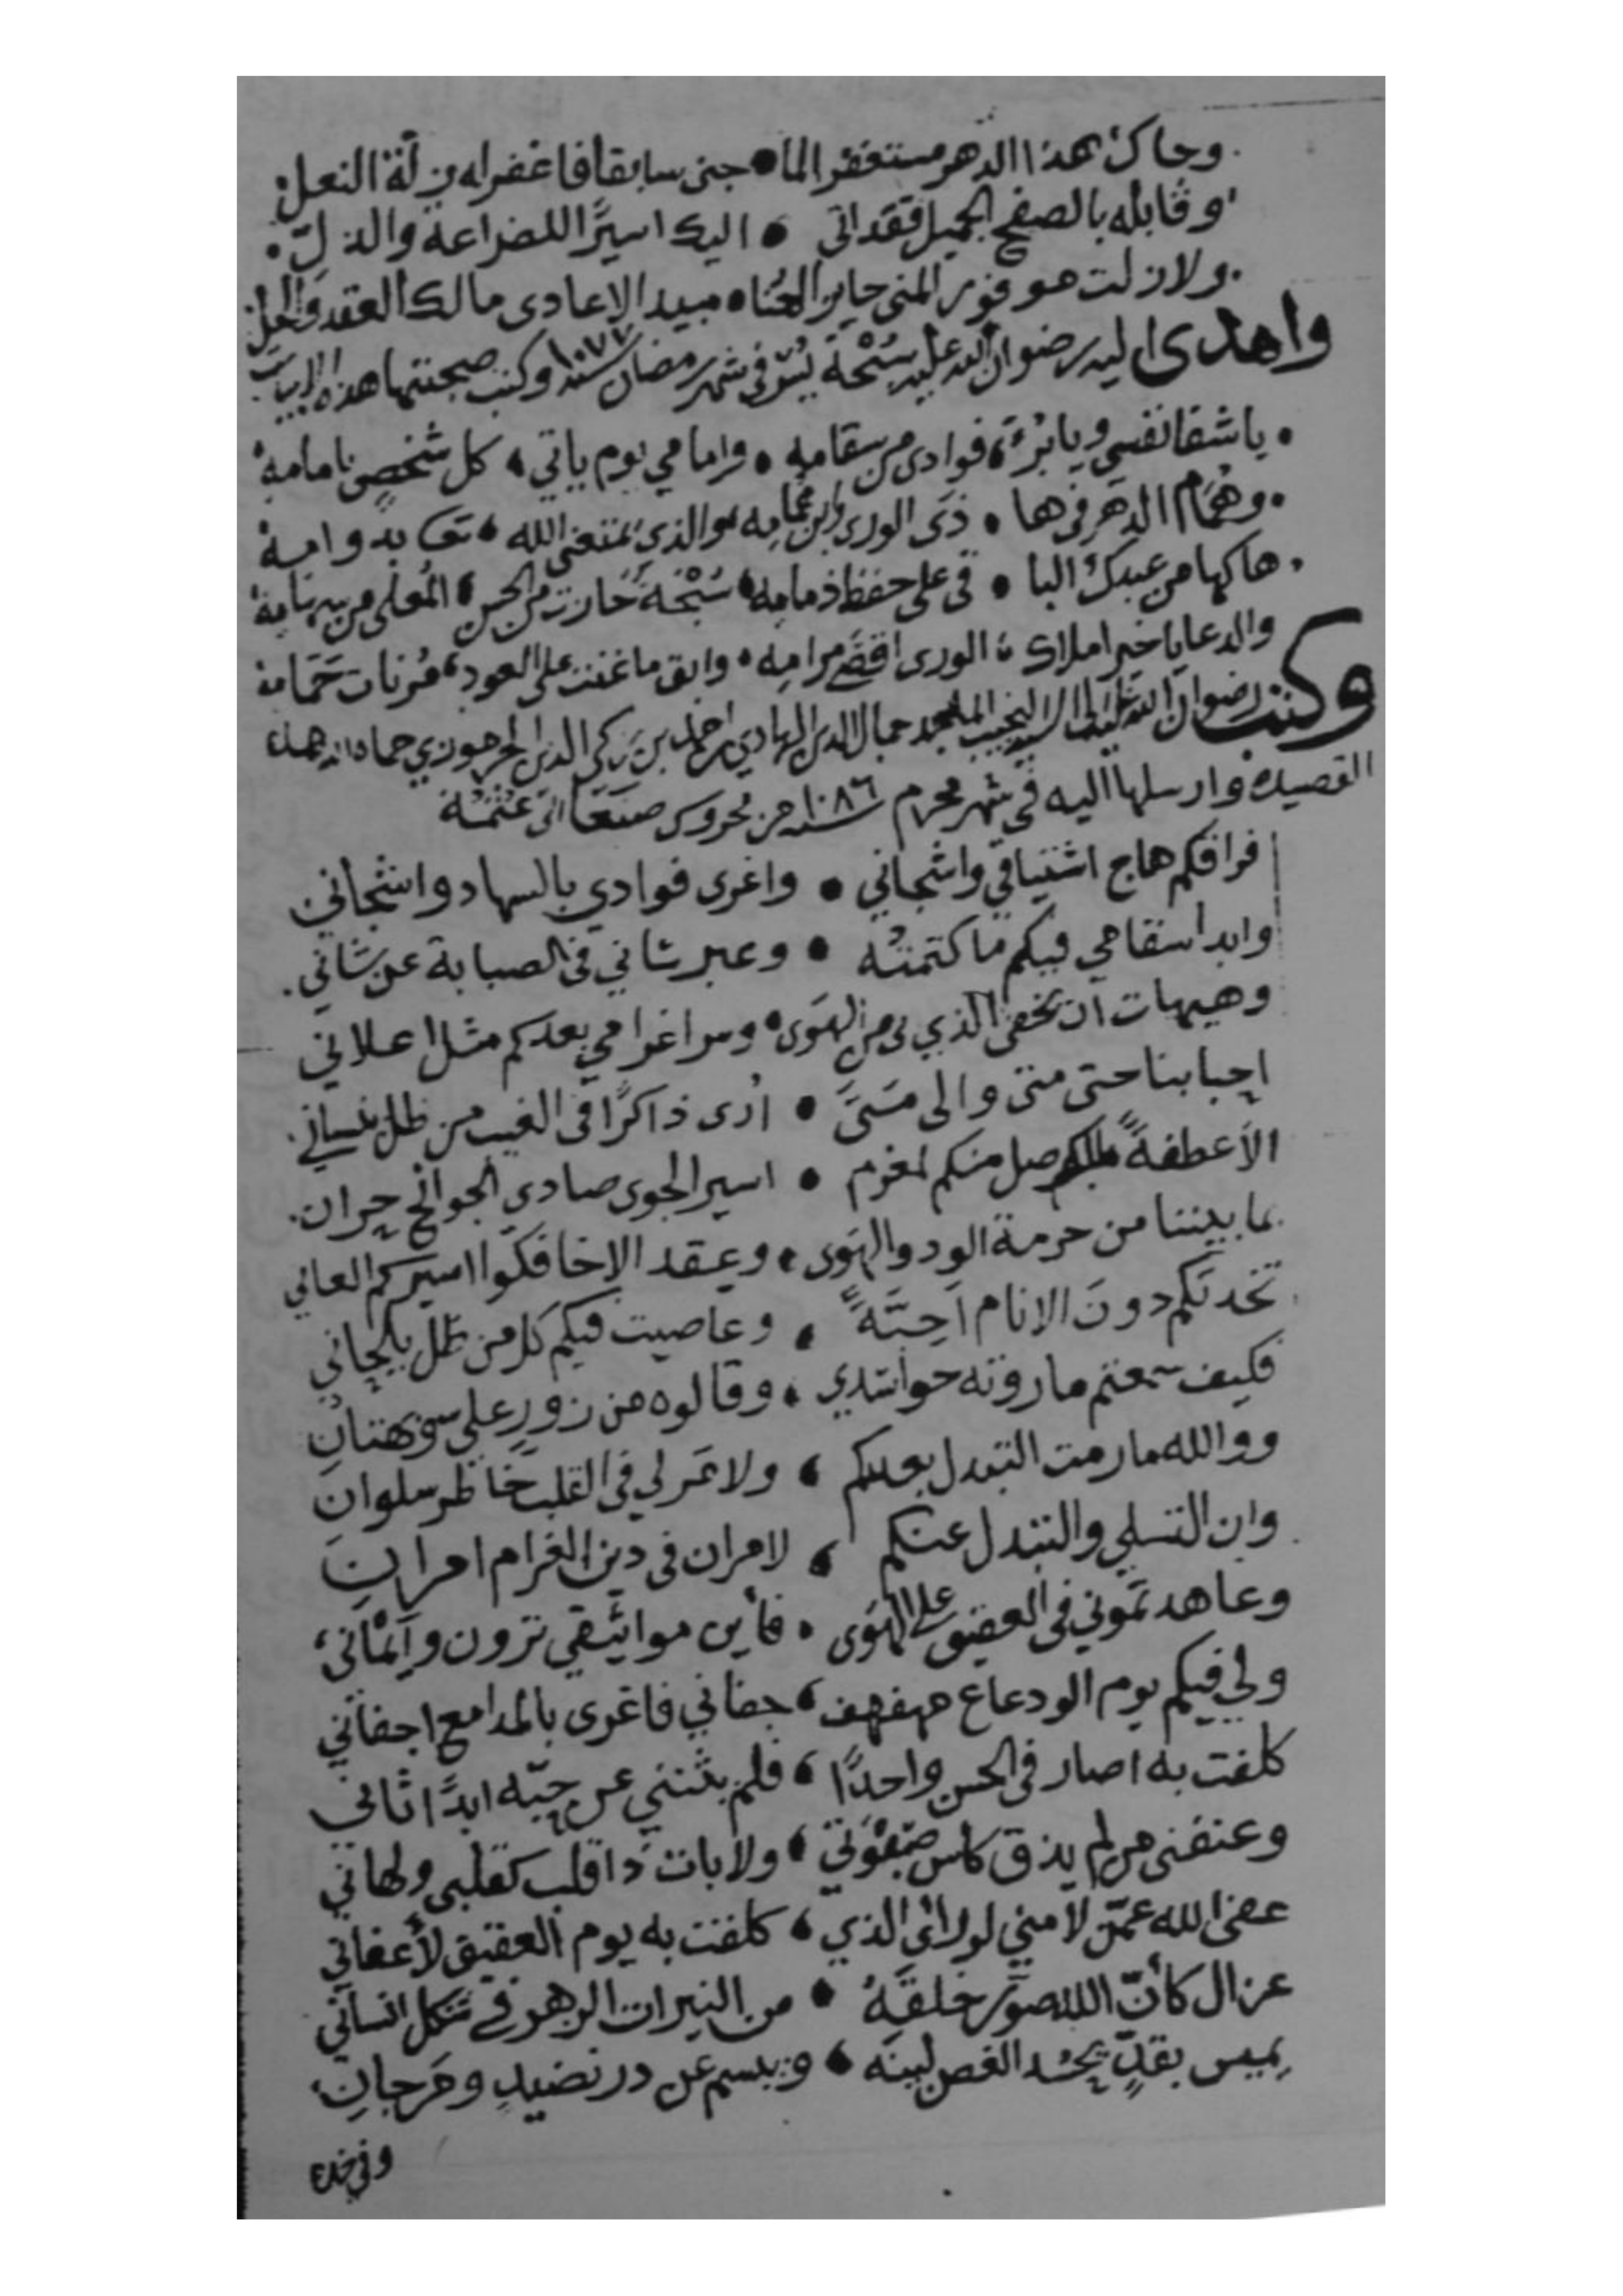 وجاك بهذا الدهر مستغفرا لما • جنى سابقا فاغفر له زلة النعل
وقابله بالصفح الجميل فقد اتى • اليك اسيرًا للضراعة والذلّ
ولازلت موفور المنى حايز • مبيد الاعادي مالك العقد والحل
واهدى اليه رضوان الله عليه سُبْحَة يُسْر في شهر رمضان سنة ١٠٧٧ وكتب صحبتها هذه الابيات
يا شفا نفسي ويا بُرْءَ • فوادي من سقامه • وامامي يوم ياتي • كل شخص بامامه
وهُمام الدهر في • الورى وابن همامه • والذي متعني الله •
هاكها من عبدك البا • قي على حفظ ذمامه • سُبْحَة حازت من الحسن • المعلى من سهامه
والدعا يا خير املاك • الورى اقصى مرامه • وابق ما غنت على العود • مُرنات حَمامه
وكتب رضوان الله عليه الى السيد النجيب جمال الدين الهادي بن احمد بن زكي الدين الجرموزي حماه الله هذه
القصيدة وارسلها اليه في شهر محرم سنة ١٠٨٦ من محروس صنعا الى عُتُمَة
فراقكم هاج اشتياقي واشجاني • واغرى فوادي بالسهاد وانشجاني
وابدا سقامي فيكم ما كتمته • وعبر شاني في الصبابة عن شاني
وهيهات ان يخفى الذي بي من الهَوى • وسر اغرامي بعدكم مثل اعلاني
احبابنا حتى متى والى متَى • اُرى ذاكرًا في الغيب من ظل ينساني
الاَ عطفةً صل منكم لمغرم • اسير الجوى صادي الجوانح حران
بما بيننا من حرمة الود والهَوى • وعقد الاخا فكّوا اسيركم العاني
تخذتكم دونَ الانام اَحِبّةً • وعاصيت فيكم كل من ظل يلحاني
فكيف سمعتم ما روته حواسدي • وقالوه من زورٍ علي وبهتانِ
ووالله ما رمت التبدل بعدكم • ولا مَر لي في القلب خَاطر سلوانَ
وان التسلي والتبدل عنكم • لامران في دين الغرام امرانِ
وعاهدتموني في العقيق على الهوَى • فأين مواثيقي ترون وأيْماني
ولي فيكم يوم الودعاع مهفهف • جفاني فاغرى بالمدامع اجفاني
كلفت به اصار في الحسن واحدًا • فلم يثنني عن حبّه ابدًا ثاني
وعنفني من لم يذق كاس صَبْوَتي • ولا بات ذا قلب كقلبي ولهاني
عفى الله عمّن لامني لو راى الذي • كلفت به يوم العقيق لأعفاني
غزال كأنّ الله صوّر خلقَهُ • من النيرات الزهر في شكل انساني
يميس بقدٍّ يحسُد الغصن لينَه • ويبسم عن در نضيدٍ ومَرجانِ
وفي خده